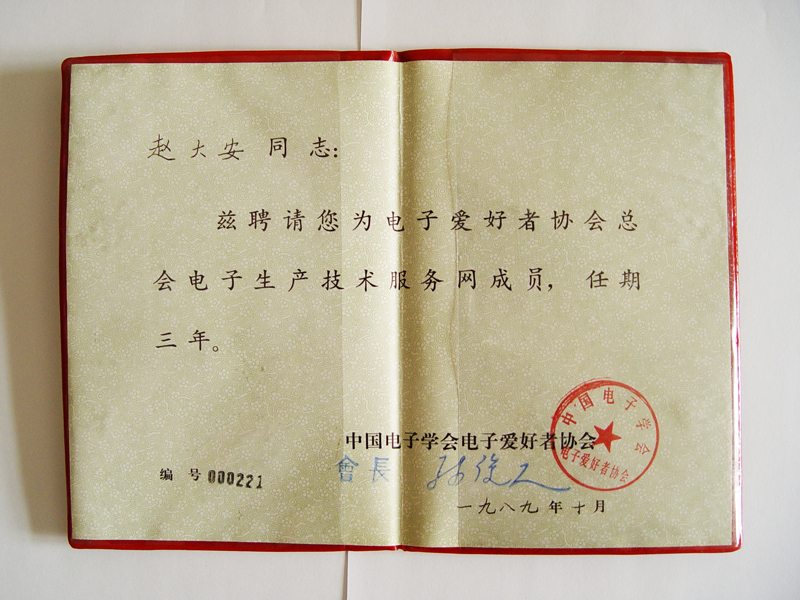 赵大安 同志:
兹聘请您为电子爱好者协会总
会电子生产技术服务网成员, 任期
三年。
中国电子学会电子爱好者协会
中国电子学会
电子爱好者协会
编 号 000221
會長
一九八九年十月